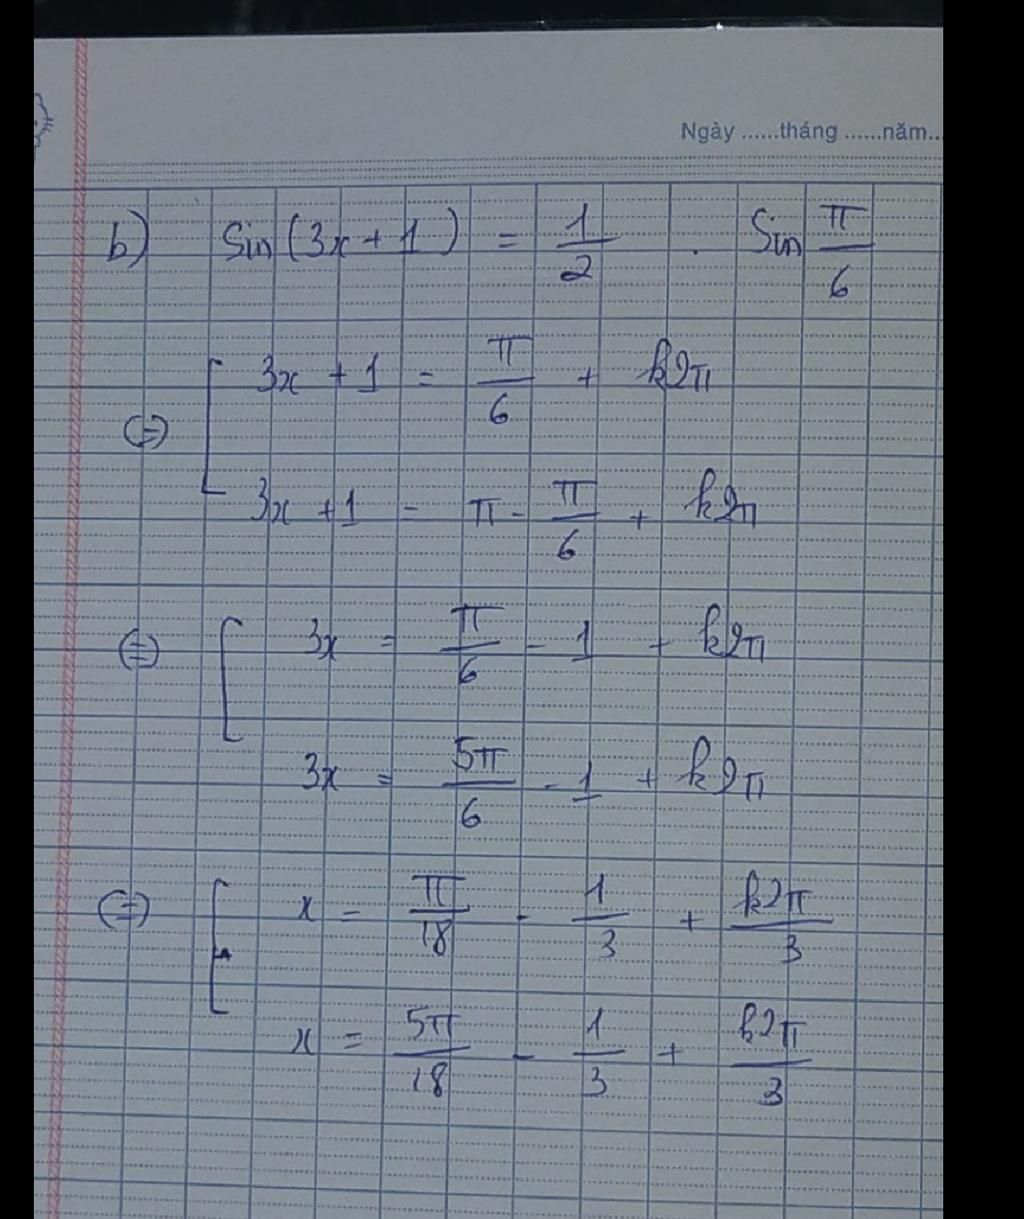 Ngày ......tháng ......năm...
b) Sin(3x + 1) = 1/2 . Sin π/6
⇔ [ 3x + 1 = π/6 + k2π
3x + 1 = π - π/6 + k2π
⇔ [ 3x = π/6 - 1 + k2π
3x = 5π/6 - 1 + k2π
⇔ [ x = π/18 - 1/3 + k2π/3
x = 5π/18 - 1/3 + k2π/3